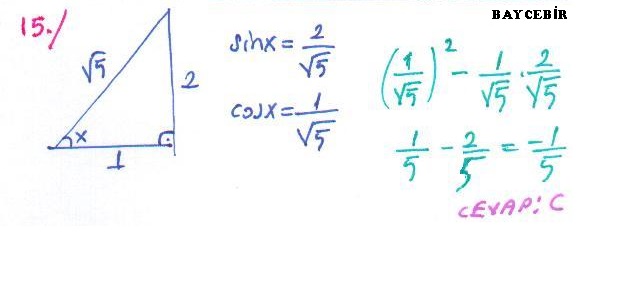 BAYCEBİR
15./
√5
2
x
1
sinx = 2/√5
cosx = 1/√5
(1/√5)² - 1/√5 · 2/√5
1/5 - 2/5 = -1/5
CEVAP: C